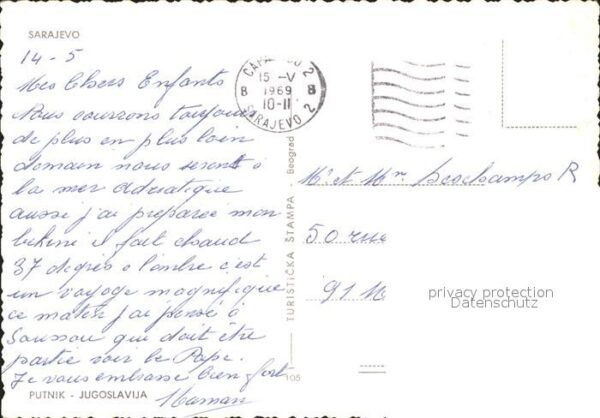 SARAJEVO
14-5
Mes Chers Enfants
Nous courrons toujours
de plus en plus loin
demain nous serons à
la mer Adriatique
aussi j'ai préparée mon
bikini il fait chaud
37 degrés a l'ombre c'est
un voyage magnifique
ce matin j'ai pensé à
qui doit être
partie voir le Pape.
Je vous embrasse bien fort
Maman
PUTNIK - JUGOSLAVIJA
SARAJEVO 2
15 -V
8 1969 8
10-11
SARAJEVO 2
TURISTIČKA ŠTAMPA - Beograd
105
Mr et Mm Deschamps R
50 rue
91 M
privacy protection
Datenschutz